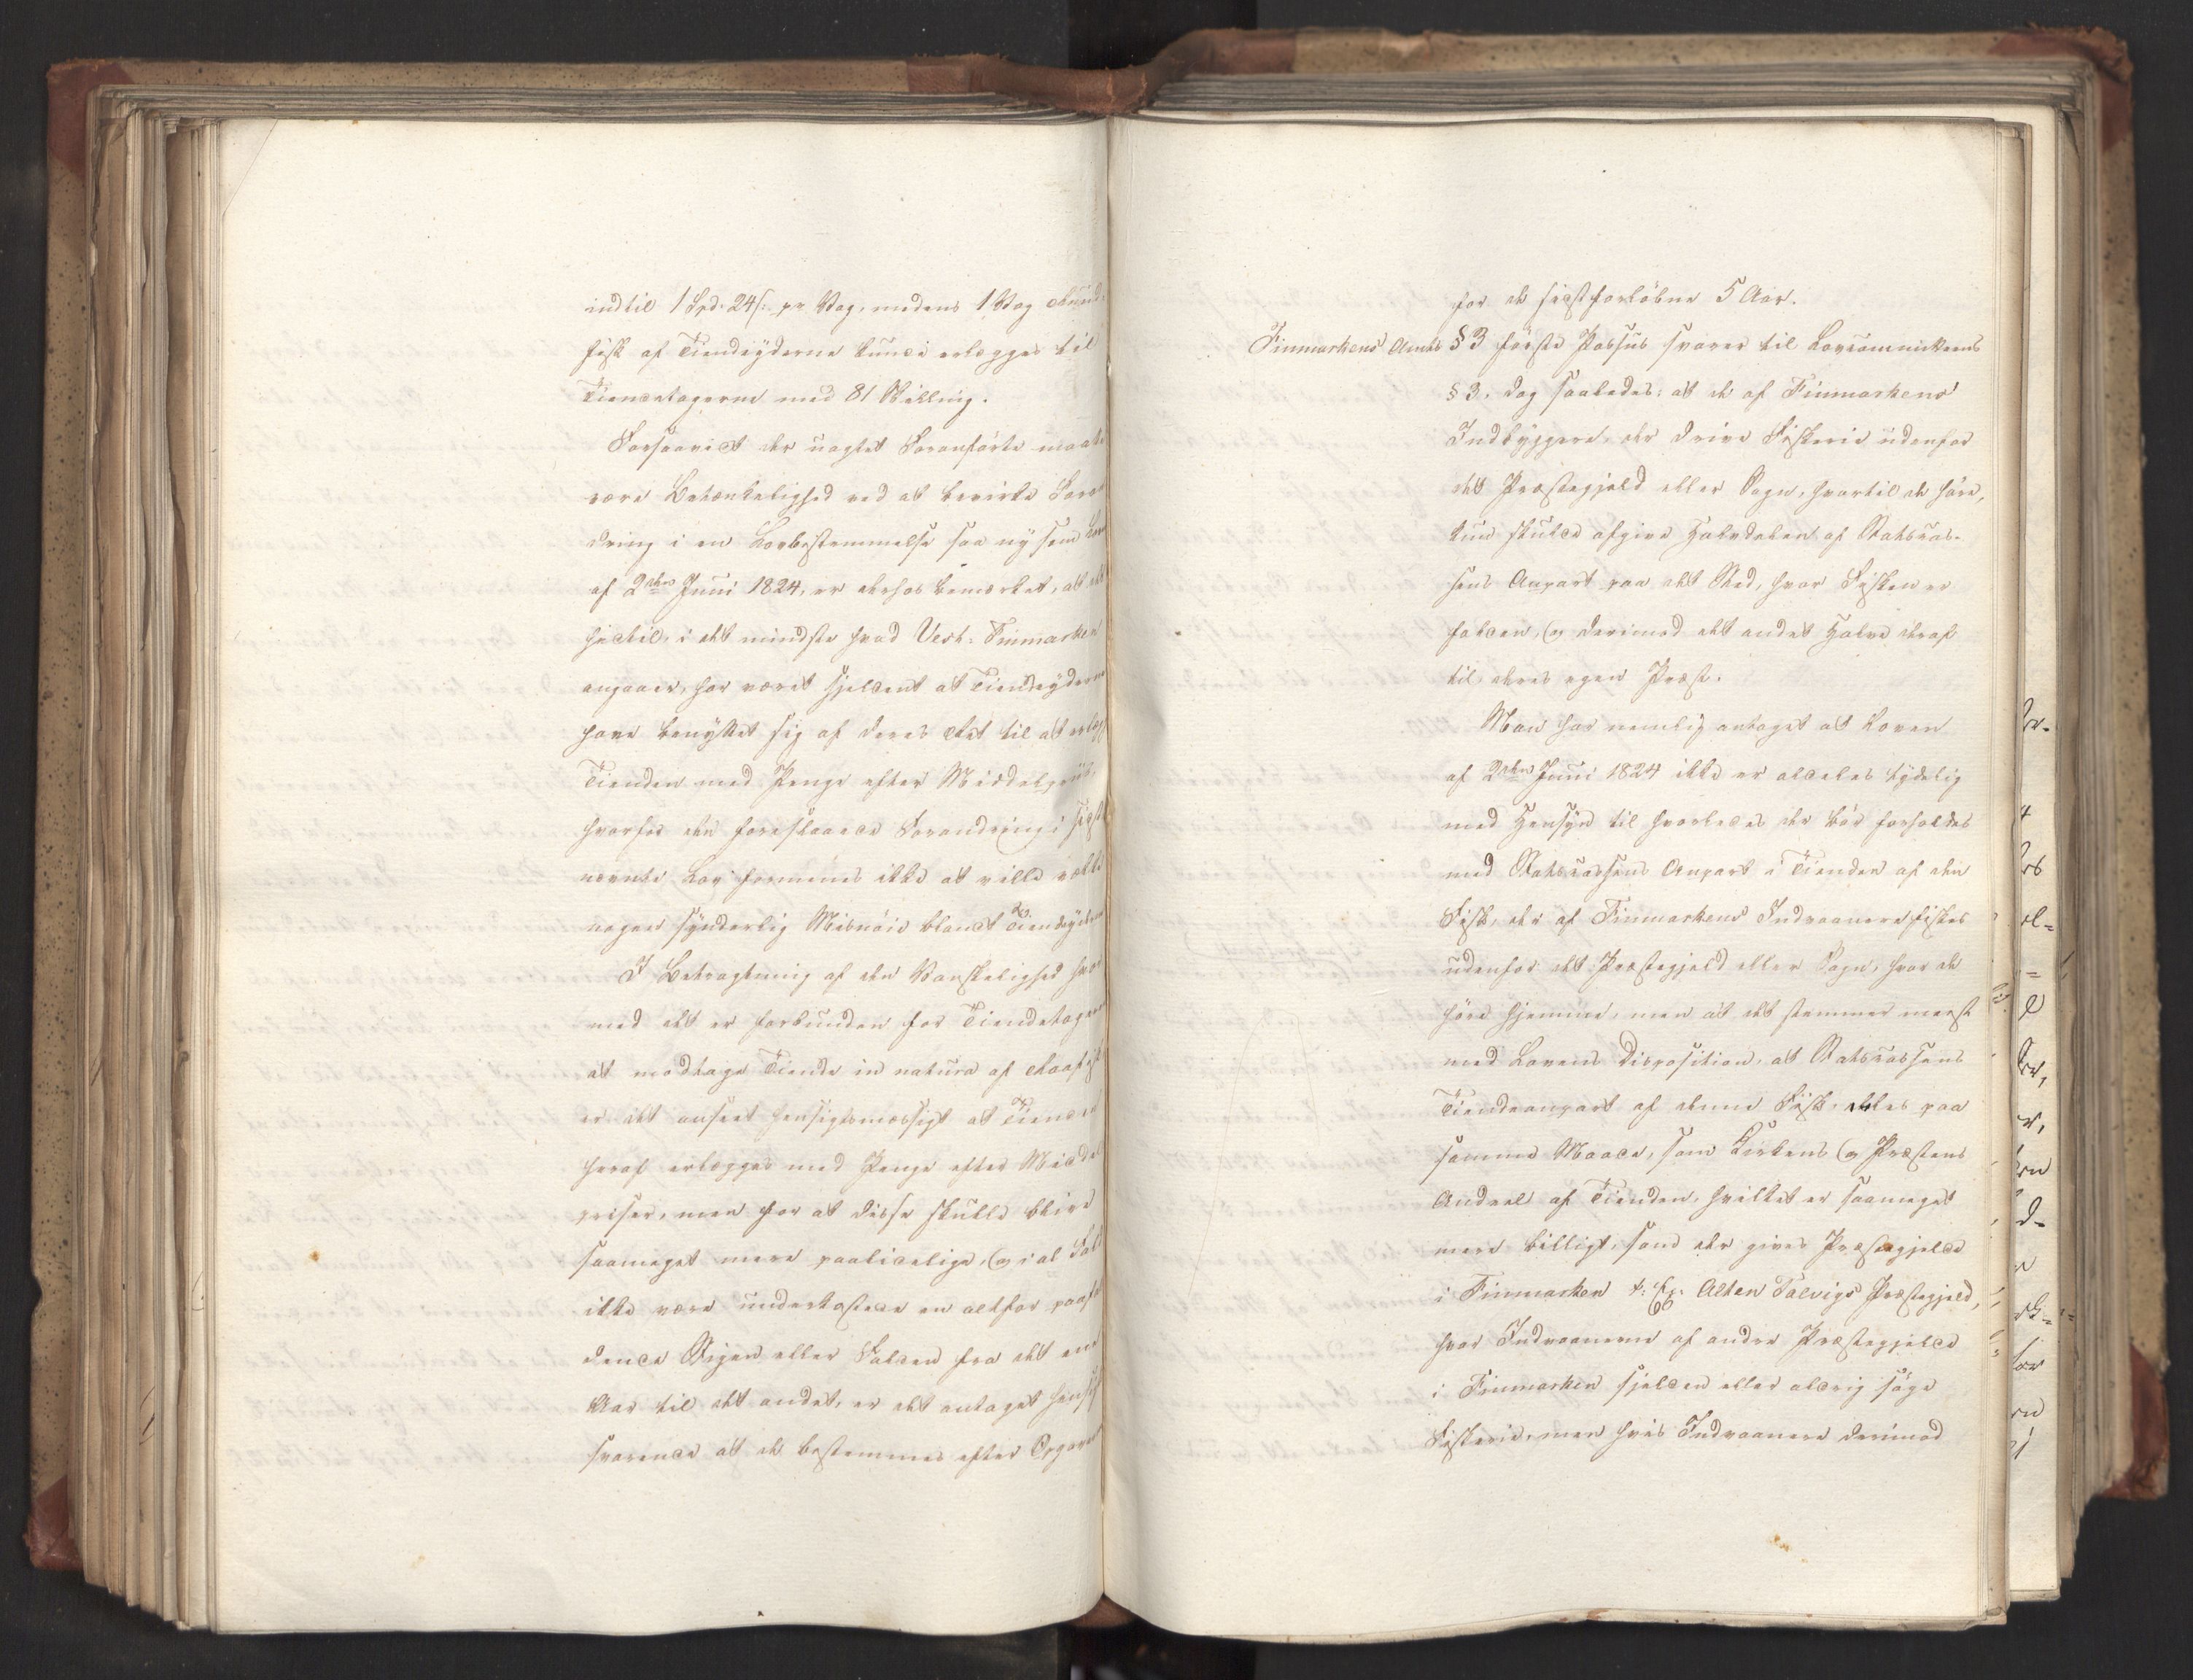 indtil 1 Spd. 24 s: pr Vog, medens 1 Vog Rund-
fisk af Tiendeyderne kund erlægges til
Tiendetagerne med 81 Skilling.
Forsaavidt der uagtet Foranførte maatte
være Betænkelighed ved at bevirke Foran
dring i en Lovbestemmelse saa ny som Lov
af 2den Juni 1824, er derhos bemærket, at det
hidtil, i det mindste hvad Vest-Finmarken
angaaer, har været sjeldent at Tiendeyderne
have benyttet sig af deres Ret til at erlægge
Tienden med Penge efter Middelpriis,
hvorfor den foreslaaede Forandring i sidst
nævnte Lov formenes ikke at ville vække
nogen synderlig Misnøie blandt Tiendeyderne
I Betragtning af den Vanskelighed hvor
med det er forbunden for Tiendetageren
at modtage Tiende in natura af Raafisk
er det anseet hensigtsmæssigt at Tienden
heraf erlægges med Penge efter Middel
priser, men for at disse skulle blive
saameget mere paalidelige, og i al Fald
ikke være underkastede en altfor paafal
dende Stigen eller Falden fra det ene
Aar til det andet, er det antaget hensigts
svarende at de bestemmes efter Opgaver
for de sidstforløbne 5 Aar.
Finmarkens Amts § 3 første Passus svarer til Lovcommitteens
§ 3, dog saaledes: at de af Finmarkens
Indbyggere, der drive Fiskerie udenfor
det Præstegjeld eller Sogn, hvortil de høre,
kun skulde afgive Halvdelen af Statscas-
sens Anpart paa det Sted, hvor Fisken er
falden, og derimod det andet Halve deraf
til deres egen Præst.
Man har nemlig antaget at Loven
af 2den Juni 1824 ikke er aldeles tydelig
med Hensyn til hvorledes der bør forholdes
med Statscassens Anpart i Tienden af den
Fisk, der af Finmarkens Indvaanere fiskes
udenfor det Præstegjeld eller Sogn, hvor de
høre hjemme, men at det stemmer meest
med Lovens Disposition, at Statscassens
Tiendeanpart af denne Fisk, deles paa
samme Maade, som Kirkens og Præstens
Andeel af Tienden, hvilket er saameget
mere billigt, som der gives Præstegjelde
i Finmarken t: Ex: Alten Talvigs Præstegjeld,
hvor Indvaanerne af andre Præstegjelde
i Finmarken sjelden eller aldrig søge
Fiskerie, men hvis Indvaanere derimod